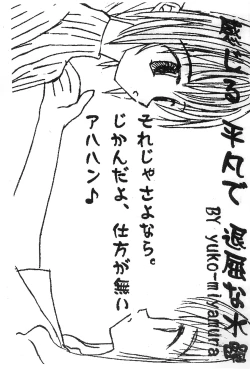 感じる 平凡で 退屈な木曜
BY yuko-miyamura
それじゃさよなら。
じかんだよ、仕方が無い
アハハン♪